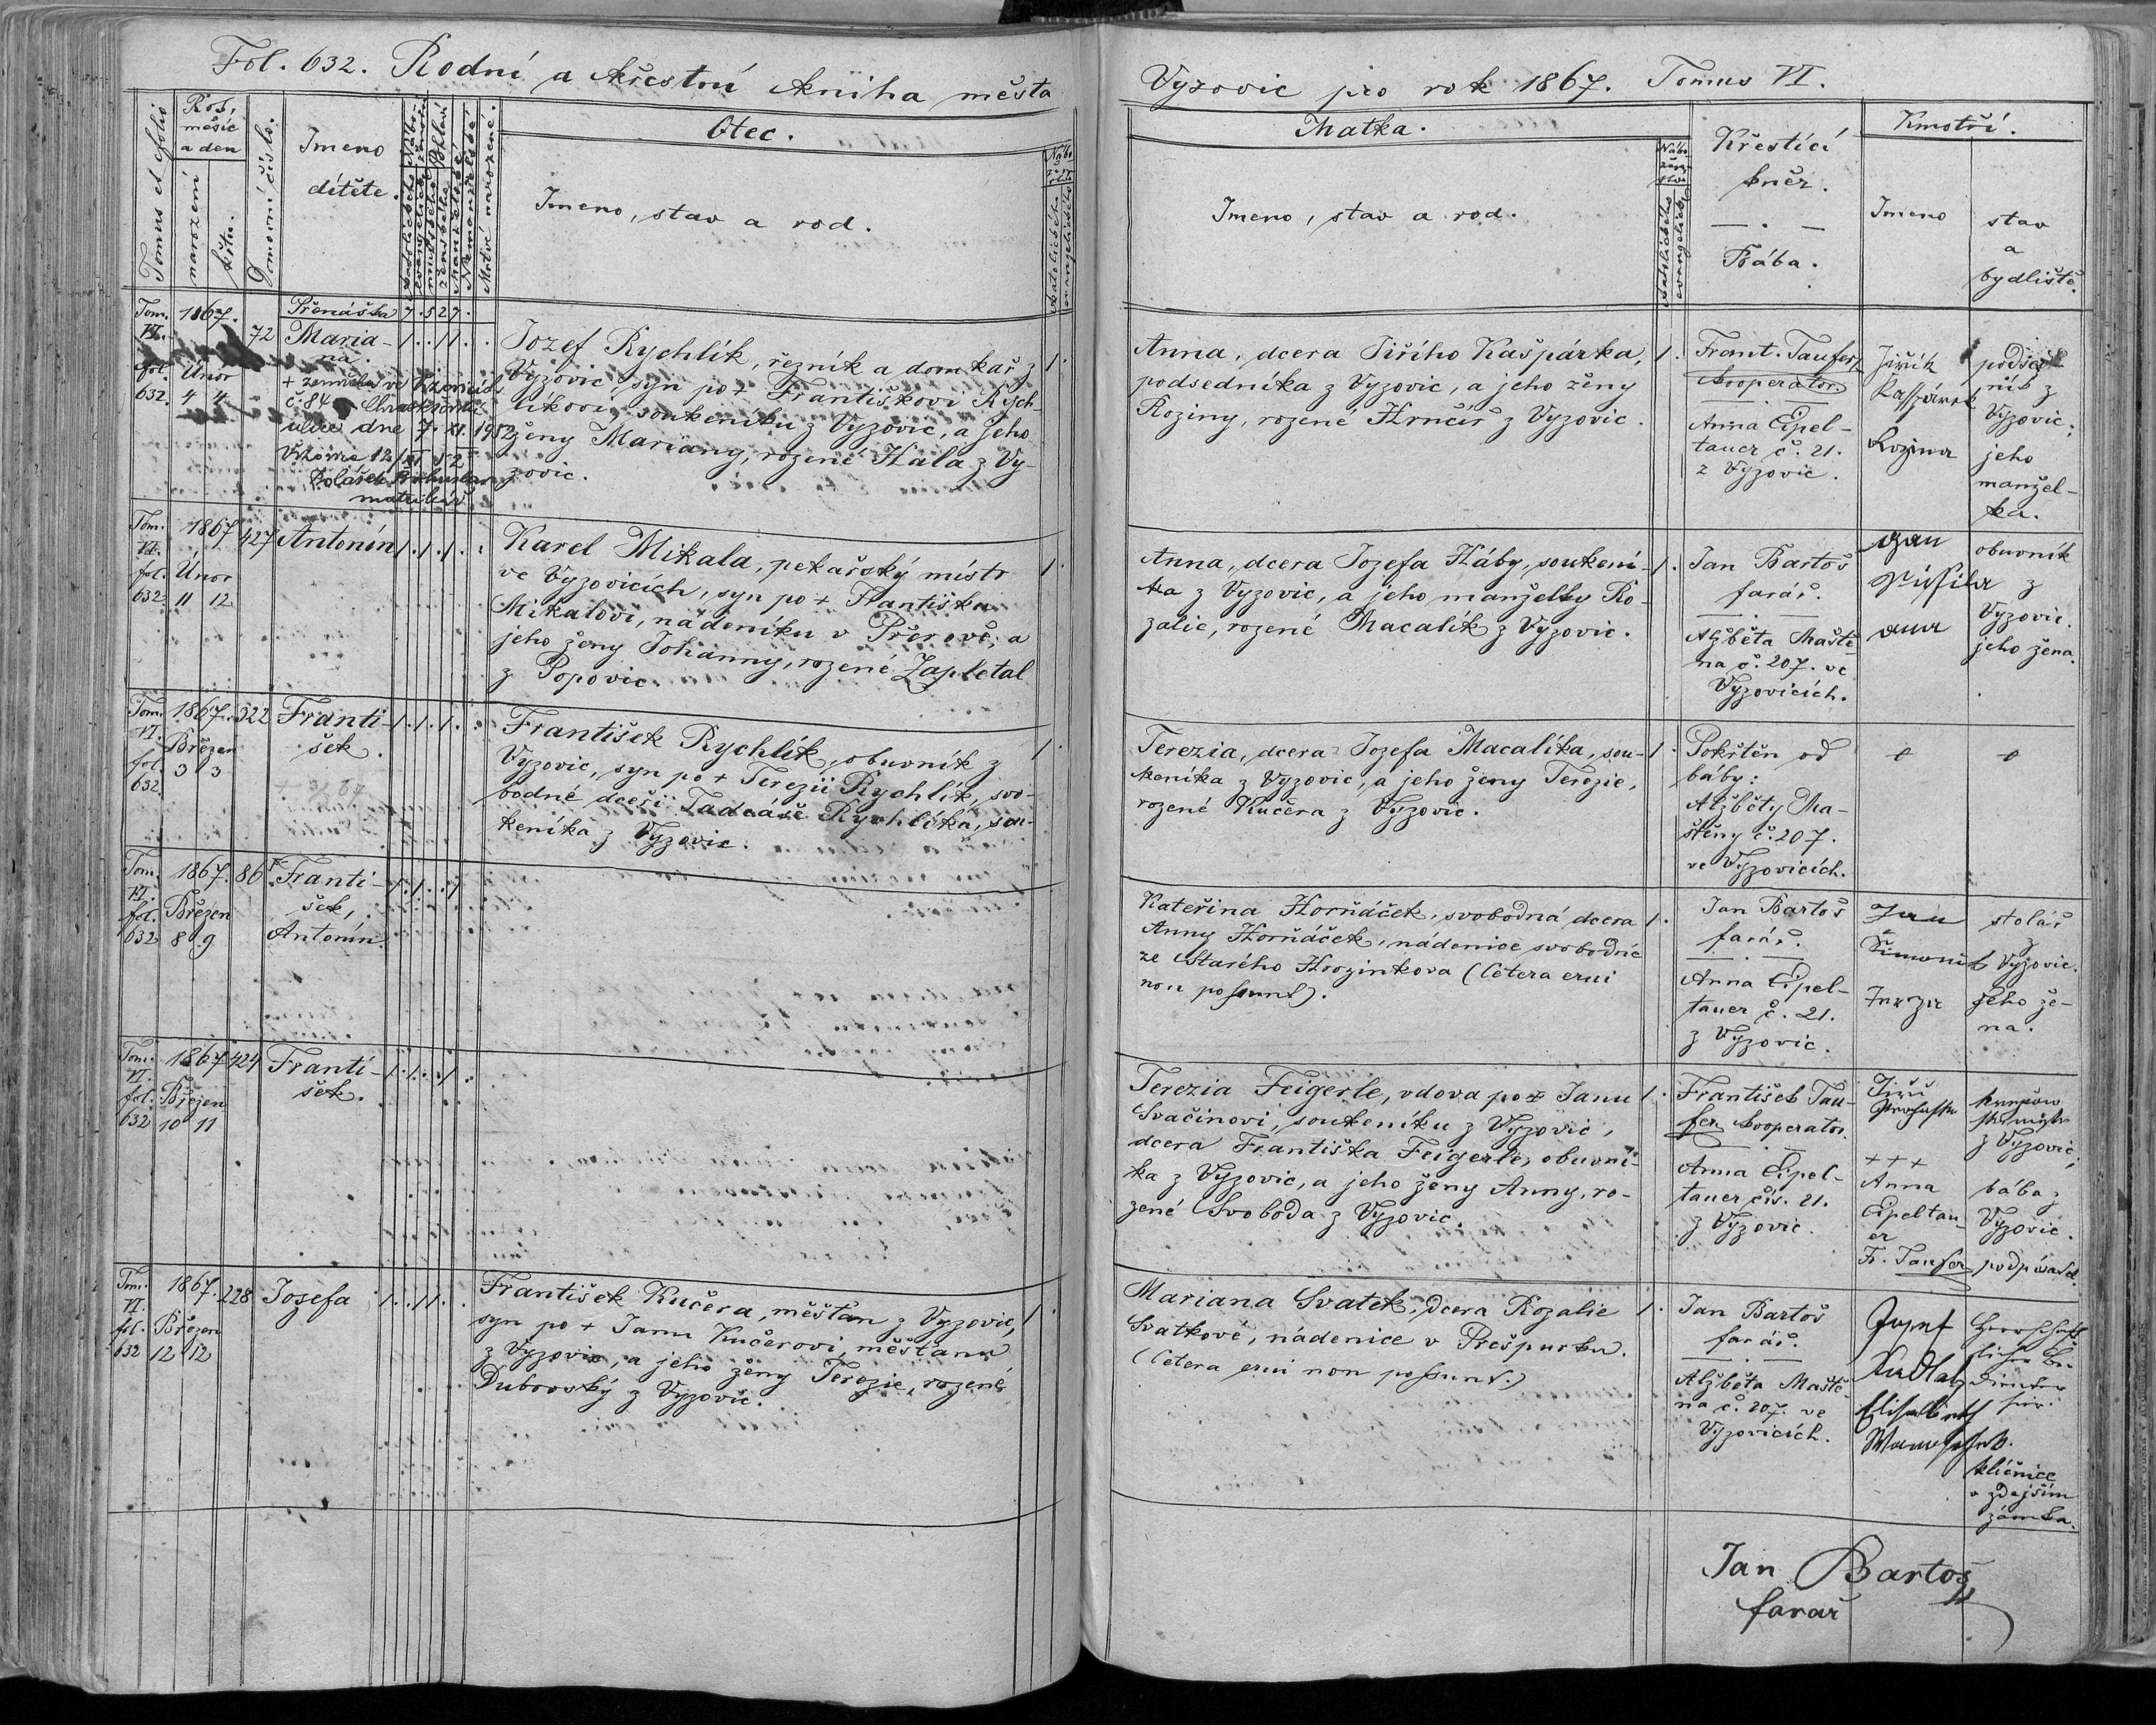 Fol. 632. Rodní a křestní kniha města
Vyzovic pro rok 1867. Tomus VI.
Tomus et folio
Rok,
měsíc
a den
narození
křtu.
Domovní číslo.
Imeno
dítěte.
Katolického
evangelick.
mužského
ženského
Manželské
Nemanželské
Mrtvě narozené.
Otec.
Imeno, stav a rod.
Nábo-
žen-
stvo
Katolického
evangelického
Matka.
Imeno, stav a rod.
Nábo-
žen-
stvo
Katolického
evangelick.
Křestící
kněz.
Bába.
Kmotří.
Imeno
stav
a
bydliště.
Přenáška 7 . 5 2 7 .
Tom.
VI.
fol.
632.
1867.
Únor
4 4
72
Maria-
na.
1 . . 1 1 . .
+ zemřela ve Vizovicích
č. 84
ulice dne 7. XI. 1952
Vizovice 12/XI 52
Polášek Bohuslav
matrikář
Jozef Rychlík, řezník a domkař z
Vyzovic, syn po + Františkovi Rych-
líkovi soukeníku z Vyzovic, a jeho
ženy Mariany, rozené Hála z Vy-
zovic.
1 .
Anna, dcera Jiřího Kašpárka,
podsedníka z Vyzovic, a jeho ženy
Roziny, rozené Hrnčíř z Vyzovic.
1 .
Frant. Taufer,
Kooperator.
Anna Eipel-
tauer č. 21.
z Vyzovic.
Jiřík
Kašpárek
Rozina
podsed-
ník z
Vyzovic;
jeho
manžel-
ka.
Tom.
VI.
fol.
632.
1867
Únor
11 12
427
Antonín
1 . 1 . 1 . .
Karel Mikala, pekařský místr
ve Vyzovicích, syn po + Františku
Mikalovi, nádeníku v Přerově, a
jeho ženy Johanny, rozené Zapletal
z Popovic.
1 .
Anna, dcera Jozefa Háby, soukení-
ka z Vyzovic, a jeho manželky Ro-
zalie, rozené Macalík z Vyzovic.
1 .
Jan Bartoš
farář.
Alžběta Maště-
na č. 207. ve
Vyzovicích.
Jan
obuvník
z
Vyzovic.
jeho žena.
Tom.
VI.
fol.
632.
1867.
Březen
3 3
322
Franti-
šek.
1 . 1 . 1 . .
František Rychlík, obuvník z
Vyzovic, syn po + Terezii Rychlík, svo-
bodné dceři Tadeáše Rychlíka, sou-
keníka z Vyzovic.
1 .
Terezia, dcera Jozefa Macalíka, sou-
keníka z Vyzovic, a jeho ženy Terezie,
rozené Kučera z Vyzovic.
1 .
Pokřtěn od
báby:
Alžběty Ma-
štěny č. 207.
ve Vyzovicích.
Tom.
VI.
fol.
632
1867.
Březen
8 9
86
Franti-
šek,
Antonín.
1 . 1 . . 1
Kateřina Horňáček, svobodná dcera
Anny Horňáček, nádenice svobodné
ze Starého Hrozinkova (Cetera erui
non possunt).
1 .
Jan Bartoš
farář.
Anna Eipel-
tauer č. 21.
z Vyzovic.
Jan
Šimoník
stolář
z Vyzovic.
jeho že-
na.
Tom.
VI.
fol.
632
1867
Březen
10 11
424
Franti-
šek.
1 . 1 . . 1 .
Terezia Feigerle, vdova po + Janu
Svačinovi, soukeníku z Vyzovic,
dcera Františka Feigerle, obuvní-
ka z Vyzovic, a jeho ženy Anny, ro-
zené Svoboda z Vyzovic.
1 .
František Tau-
fer, Kooperator.
Anna Eipel-
tauer čís. 21.
z Vyzovic.
Jiří
z Vyzovic;
+ + +
Anna
Eipeltau-
er
bába z
Vyzovic.
Fr. Taufer
podpisatel
Tom.
VI.
fol.
632
1867.
Březen
12 12
228
Josefa
1 . . 1 1 . .
František Kučera, měšťan z Vyzovic,
syn po + Janu Kučerovi, měšťanu
z Vyzovic, a jeho ženy Terezie, rozené
Dubovský z Vyzovic.
1 .
Mariana Svatek, dcera Rozalie
Svatkové, nádenice v Prešpurku.
(Cetera erui non possunt.)
1 .
Jan Bartoš
farář.
Alžběta Maště-
na č. 207. ve
Vyzovicích.
Josef
Kudlatz
Elisabeth
klíčnice
v zdejším
zámku.
Jan Bartoš
farář